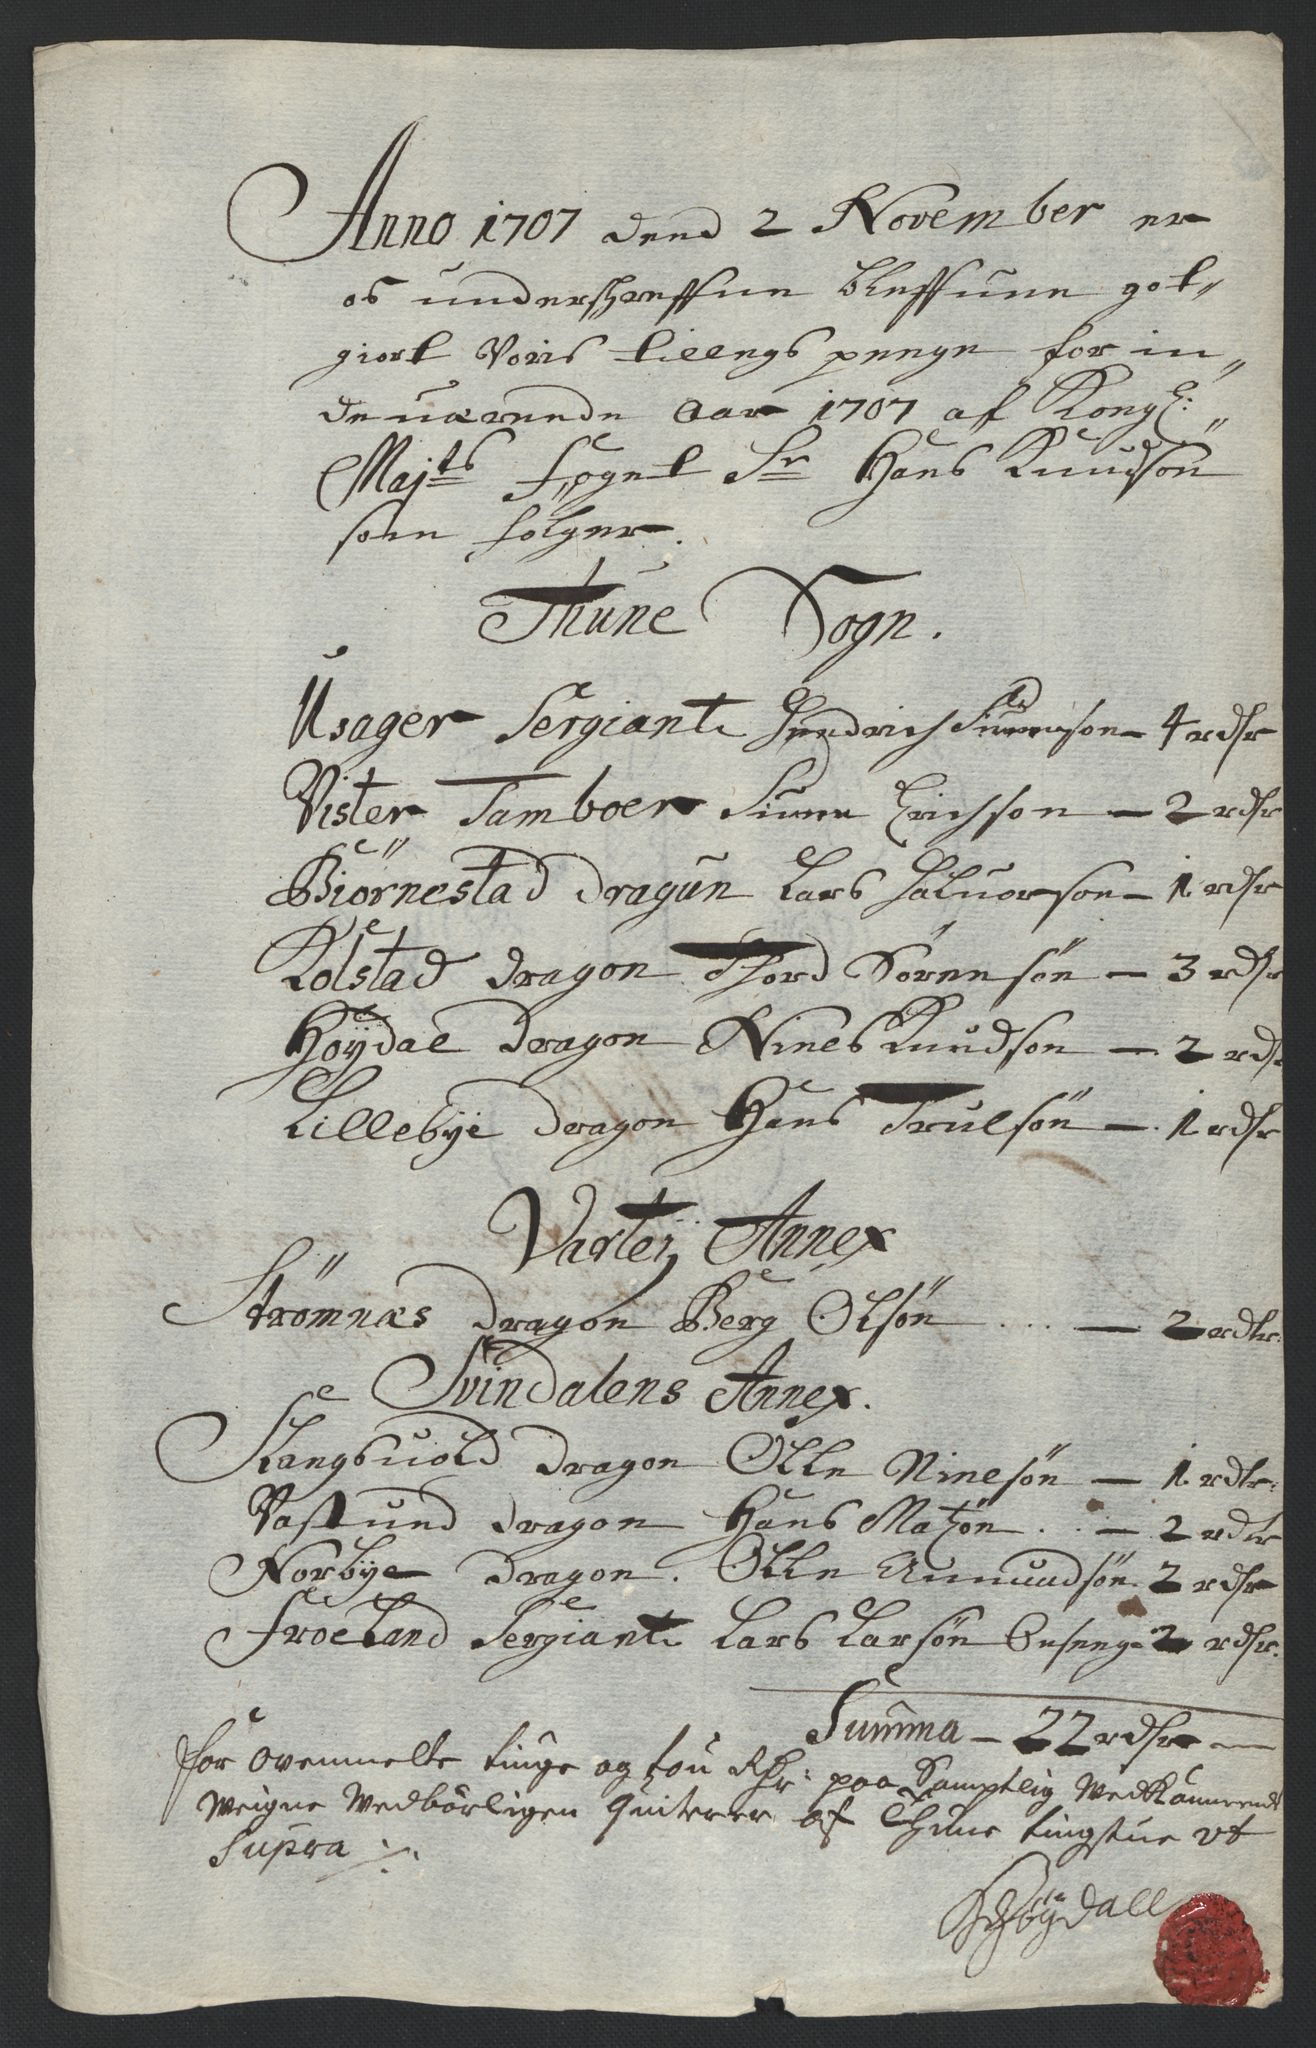 Anno 1707 dend 2 November er
os underschreffne bleffuen got„
giort Voris tillegs penge for in„
deuærende Aar 1707 af Kongl:
Majts Foget Sr Hans Knudsön
som fölger.
Thune Sogn.
Usager Sergiant Hendrich Simensson – 4 rdlr
Vister Tamboer Simen Erichsson – 2 rdlr
Biörnestad Dragun Lars Haluorson – 1 rdlr
Kolstad Dragon Thord Sörensön – 3 rdlr
Höydal Dragon Niels Knudsön – 2 rdr
Lillebye Dragon Hans Trulsön – 1 rdlr
Varteij Annex
Strömnæs Dragon Berg Olsön ... – 2 rdlr:
Svindalens Annex.
Klangsuold Dragon Olle Nilesön – 1 rdlr:
Vastund Dragon Hans Matzön .. – 2 rdlr
Norbye Dragon. Olle Amundsön. 2 rdlr
Froeland Sergiant Lars Larsön – 2 rdlr.
Summa – 22 rdlr –
for ovenmelte tiuge og tou Rdr: paa Samptlig Vedkommende
Weigne Wedbörligen Quiterer af Thune tingstue vt
Supra
Höydall